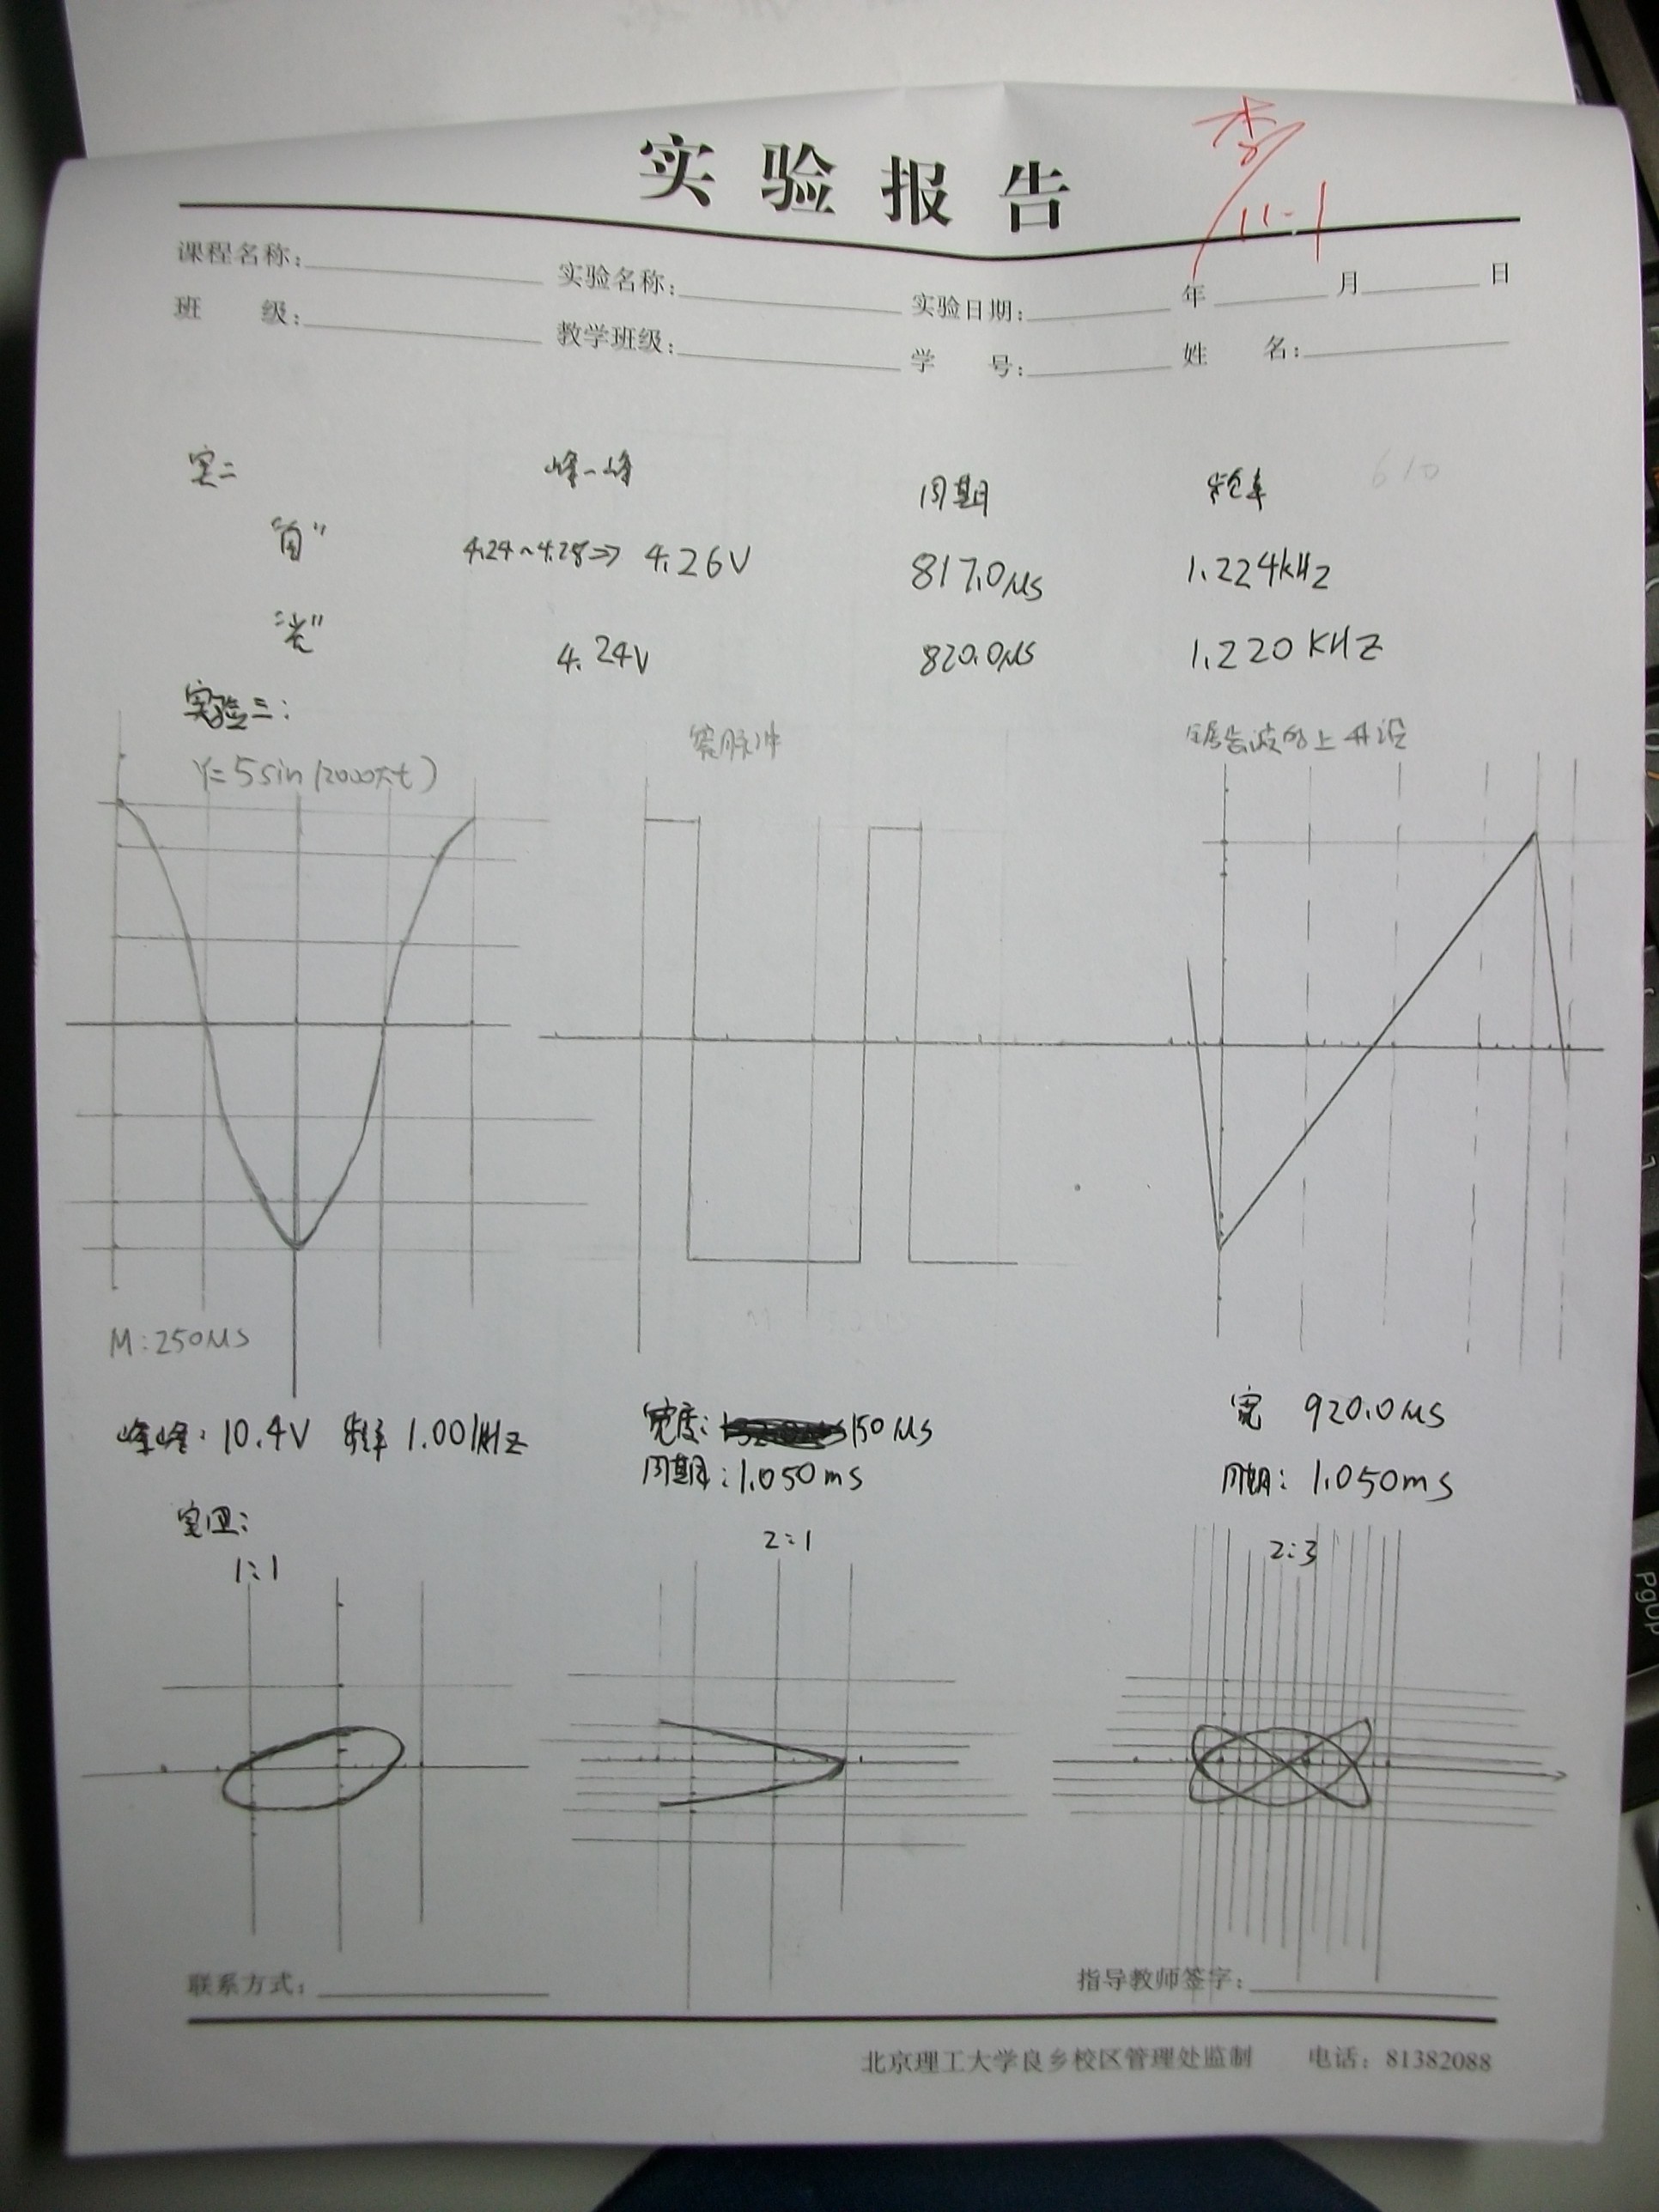 实验报告
李
11-1
课程名称: 实验名称: 实验日期: 年 月 日
班 级: 教学班级: 学 号: 姓 名:
实二 峰-峰 周期 频率 610
4.24~4.28⇒ 4.26V 817.0μs 1.224kHz
4.24V 820.0μs 1.220KHz
实验三:
Y=5sin(2000πt) 窄脉冲 锯齿波的上升沿
M:250μs
峰峰: 10.4V 频率 1.001kHz
宽度: 150μs
周期: 1.050ms
宽 920.0μs
周期: 1.050ms
实四:
1:1 2:1 2:3
联系方式: 指导教师签字:
北京理工大学良乡校区管理处监制 电话: 81382088
PgUp